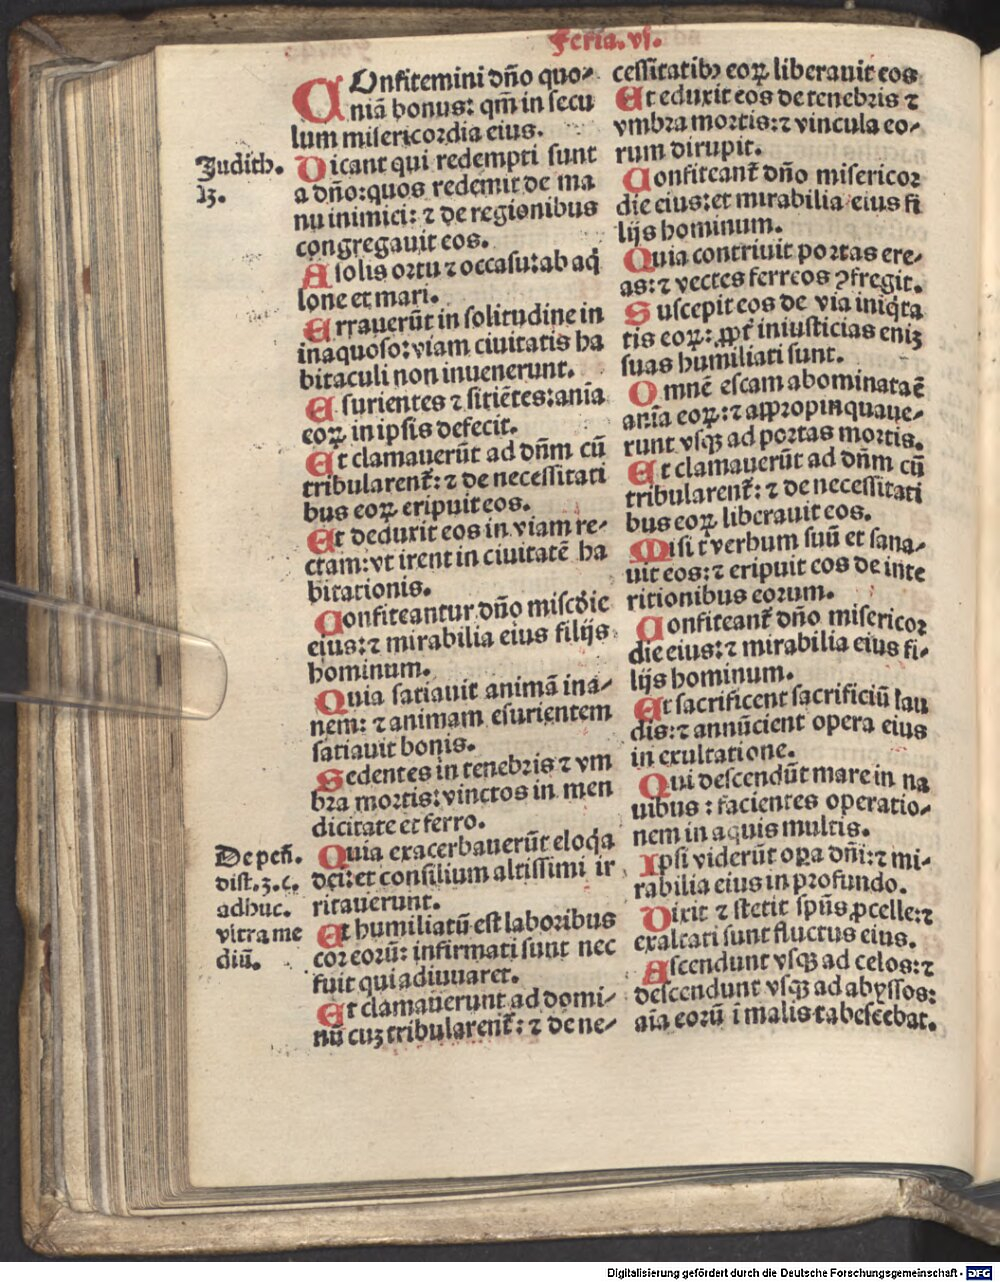 Feria. vſ.
COnfitemini dño quo⸗
niã bonus: qm̃ in ſecu
lum miſericordia eius.
Dicant qui redempti ſunt
a dño: quos redemit de ma
nu inimici: ⁊ de regionibus
congregauit eos.
A ſolis ortu ⁊ occaſu: ab aq̇
lone et mari.
Errauerũt in ſolitudine in
inaquoſo: viam ciuitatis ha
bitaculi non inuenerunt.
Eſurientes ⁊ ſitiẽtes: anĩa
eoꝝ in ipſis defecit.
Et clamauerũt ad dñm cũ
tribularent᷑: ⁊ de neceſſitati
bus eoꝝ eripuit eos.
Et deduxit eos in viam re⸗
ctam: vt irent in ciuitatẽ ha
bitationis.
Confiteantur dño miſcd̃ie
eius: ⁊ mirabilia eius filijs
hominum.
Quia ſatiauit animã ina⸗
nem: ⁊ animam eſurientem
ſatiauit bonis.
Sedentes in tenebris ⁊ vm
bra mortis: vinctos in men
dicitate et ferro.
Quia exacerbauerũt eloq̇a
dei: et conſilium altiſſimi ir
ritauerunt.
Et humiliatũ eſt laboribus
cor eorũ: infirmati ſunt nec
fuit qui adiuuaret.
Et clamauerunt ad domi⸗
nũ cuꝫ tribularent᷑: ⁊ de ne⸗
Judith.
13.
De peñ.
diſt. 3. c.
adhuc.
vltra me
diũ.
ceſſitatibꝫ eoꝝ liberauit eos
Et eduxit eos de tenebris ⁊
vmbra mortis: ⁊ vincula eo⸗
rum dirupit.
Confiteant᷑ dño miſericor
die eius: et mirabilia eius fi
lijs hominum.
Quia contriuit portas ere⸗
as: ⁊ vectes ferreos ꝯfregit.
Suſcepit eos de via iniq̇ta
tis eoꝝ: ꝓpt᷑ iniuſticias eniꝫ
ſuas humiliati ſunt.
Omnẽ eſcam abominata ẽ
anĩa eoꝝ: ⁊ appropinquaue⸗
runt vſqꝫ ad portas mortis.
Et clamauerũt ad dñm cũ
tribularent᷑: ⁊ de neceſſitati
bus eoꝝ liberauit eos.
Miſit verbum ſuũ et ſana⸗
uit eos: ⁊ eripuit eos de inte
ritionibus eorum.
Confiteant᷑ dño miſericor
die eius: ⁊ mirabilia eius fi⸗
lijs hominum.
Et ſacrificent ſacrificiũ lau
dis: ⁊ annũcient opera eius
in exultatione.
Qui deſcendũt mare in na
uibus: facientes operatio⸗
nem in aquis multis.
Ipſi viderũt oꝑa dñi: ⁊ mi⸗
rabilia eius in profundo.
Dixit ⁊ ſtetit ſpũs ꝓcelle: ⁊
exaltati ſunt fluctus eius.
Aſcendunt vſqꝫ ad celos: ⁊
deſcendunt vſqꝫ ad abyſſos:
aĩa eorũ ĩ malis tabeſcebat.
Digitalisierung gefördert durch die Deutsche Forschungsgemeinschaft - DFG